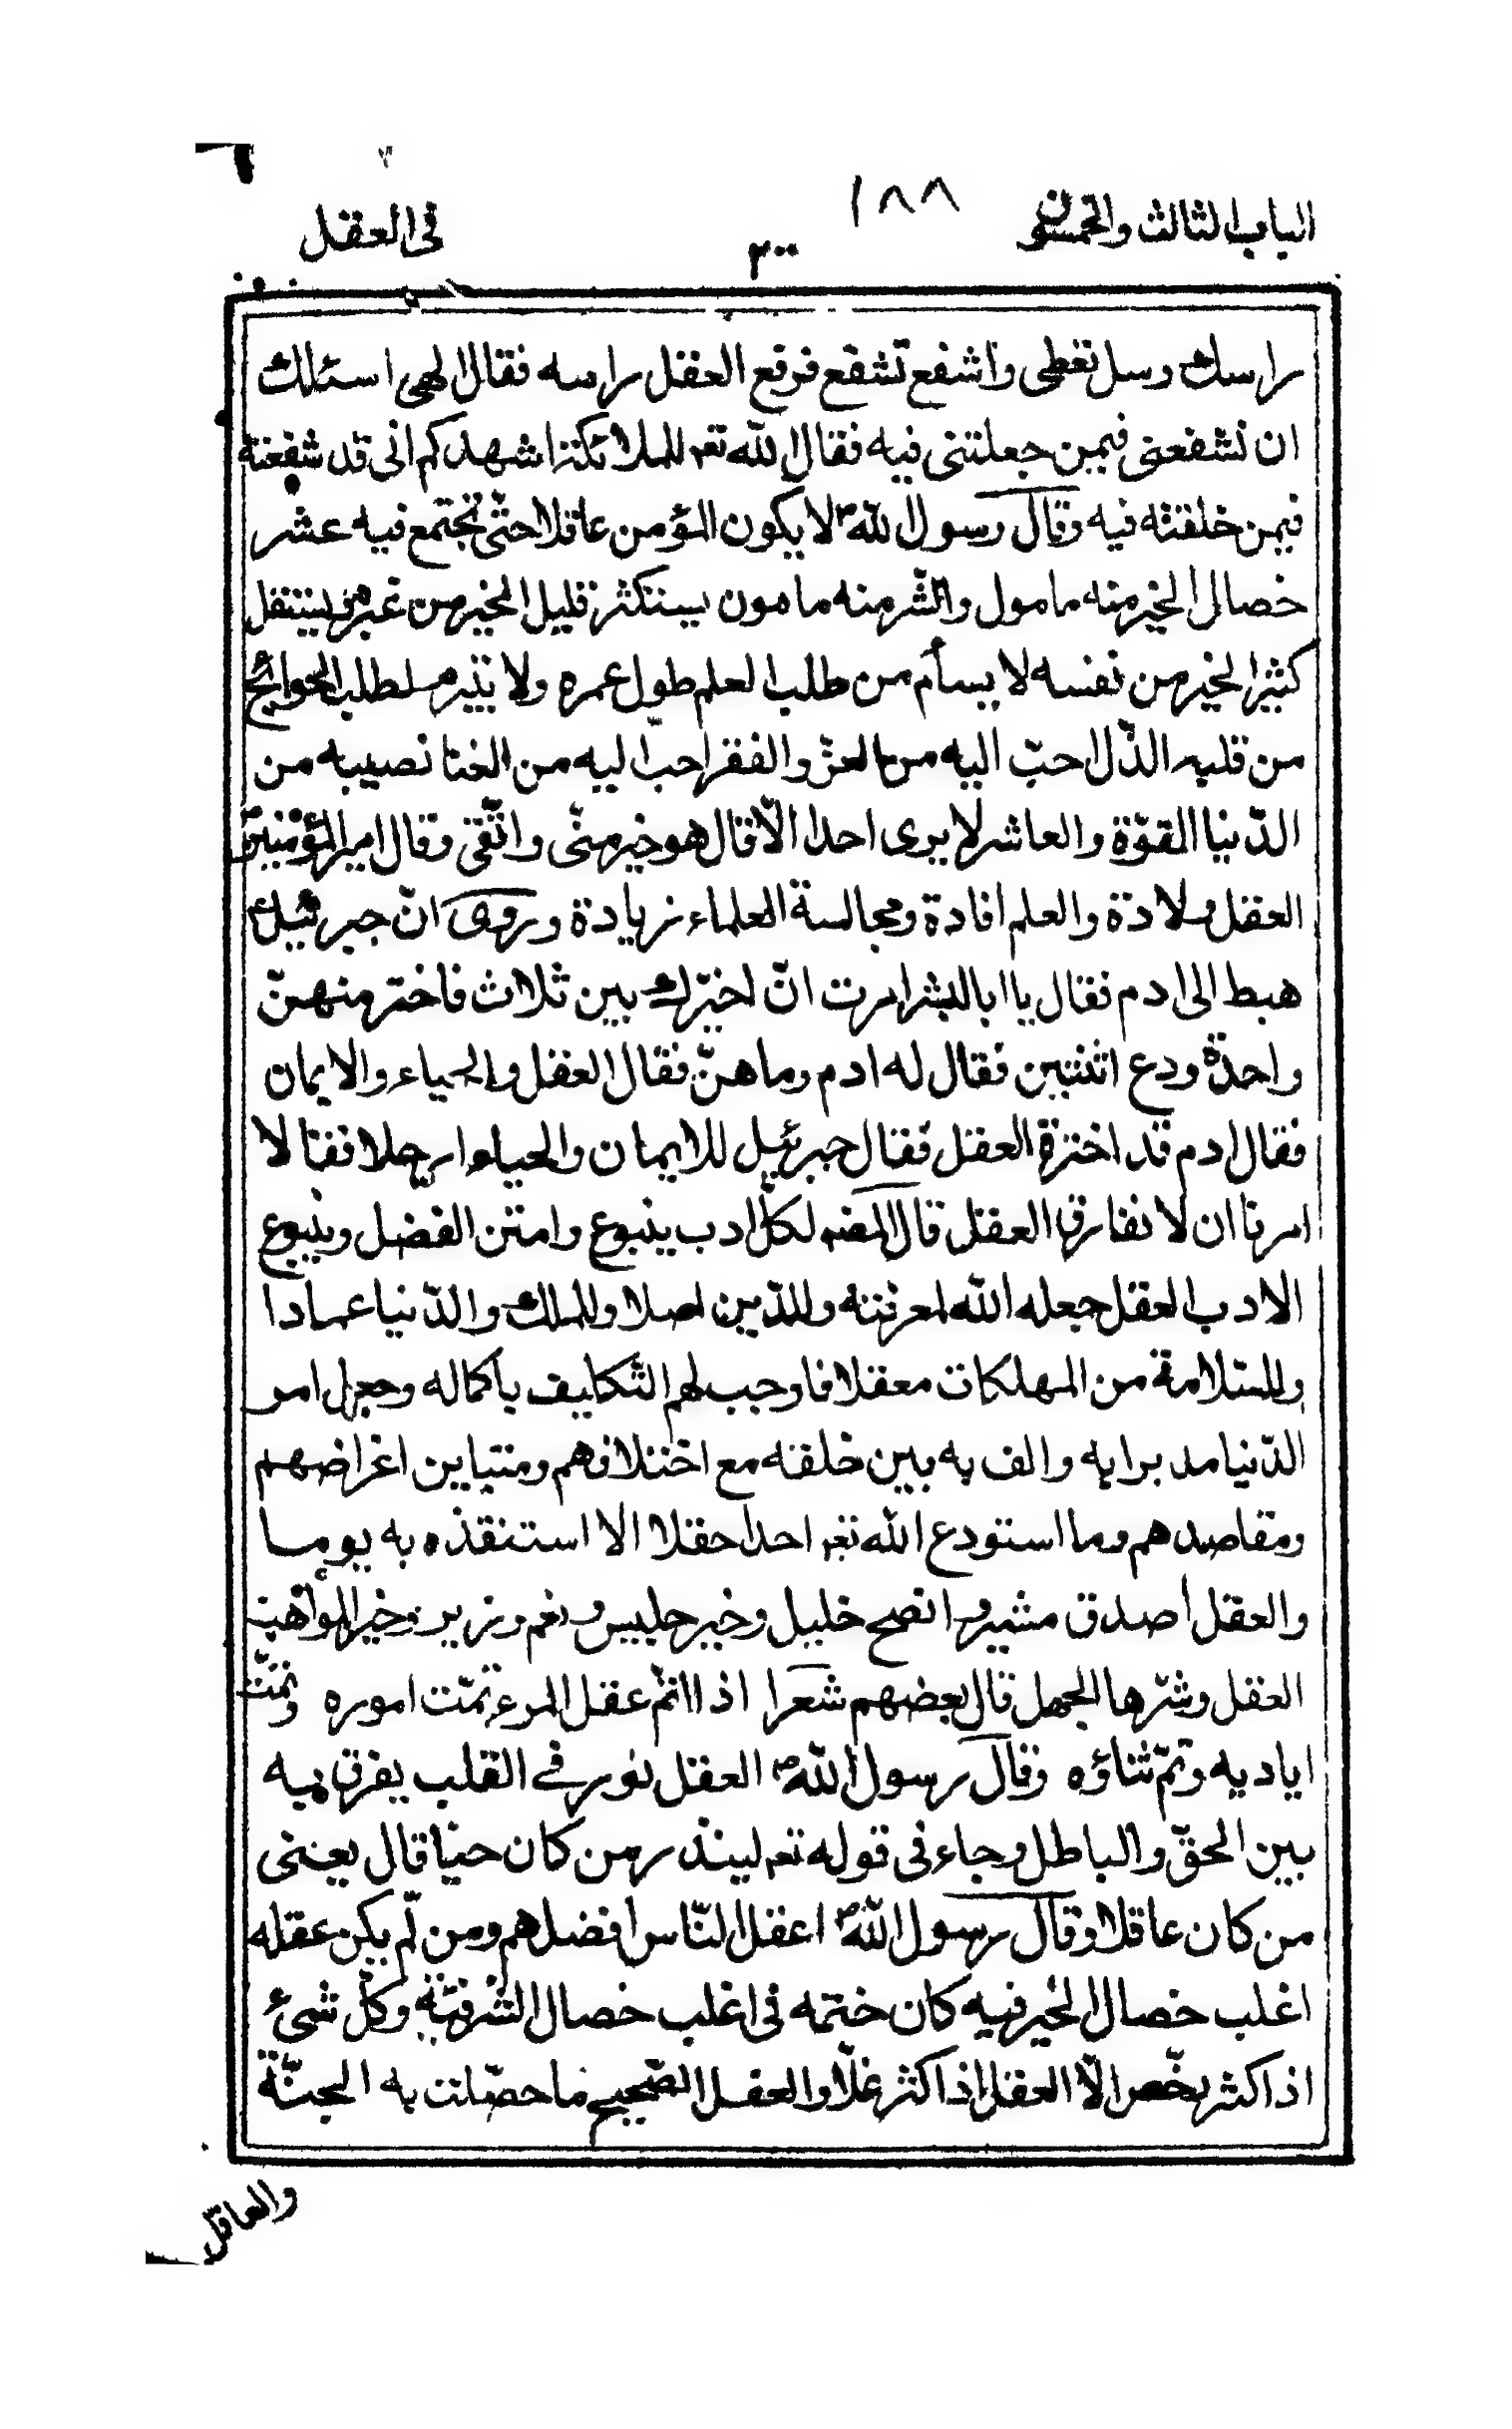 الباب الثالث والخمسون ١٨٨ في العقل
٣٠٠
راسك وسل تعطى واشفع تشفع فرفع العقل راسه فقال الهى اسئلك
ان تشفعنى فيمن جعلتنى فيه فقال الله تعم للملائكة اشهدكم انى قد شفعته
فيمن خلقته فيه وقال رسول الله ص لا يكون المؤمن عاقلا حتى تجتمع فيه عشر
خصال الخير منه مامول والشر منه مامون يستكثر قليل الخير من غيره ويستقل
كثير الخير من نفسه لا يسأم من طلب العلم طول عمره ولا يتبرم بطلب الحوائج
من قلبه الذّل احبّ اليه من العزّ والفقر احبّ اليه من الغنا نصيبه من
الدّنيا القوّة والعاشر لا يرى احدا الّا قال هو خير منّى واتّقى وقال امير المؤمنين
العقل ولادة والعلم افادة ومجالسة العلماء زيادة وروى انّ جبرئيل
هبط الى ادم فقال يا ابا البشر امرت انّ اخيّرك بين ثلاث فاختر منهنّ
واحدة ودع اثنتين فقال له ادم وما هنّ فقال العقل والحياء والايمان
فقال ادم قد اخترت العقل فقال جبرئيل للايمان والحياء ارحلا فقالا
امرنا ان لا نفارق العقل قال المضه لكلّ ادب ينبوع وامتن الفضل وينبوع
الادب العقل جعله الله لمعرفته وللدّين اصلا وللملك والدّنيا عمادا
وللسّلامة من المهلكات معقلا فاوجب لهم التّكليف باكماله وجعل امر
الدّنيا مدبرا به والف به بين خلقه مع اختلافهم ومتباين اغراضهم
ومقاصدهم وما استودع الله تعم احدا حقلا الا استنقذه به يوما
والعقل اصدق مشير وانصح خليل وخير جليس ونعم وزير وخير المواهب
العقل وشرّها الجهل قال بعضهم شعرا اذا تمّ عقل المرء تمّت اموره وتمّت
اياديه وتمّ ثناؤه وقال رسول الله ص العقل نور في القلب يفرق به
بين الحقّ والباطل وجاء فى قوله تعم لينذر من كان حيّا قال يعنى
من كان عاقلا وقال رسول الله ص اعقل النّاس افضلهم ومن لّم يكن عقله
اغلب خصال الخير فيه كان ختمه فى اغلب خصال الشّر فيه وكلّ شئ
اذا كثر رخص الّا العقل اذا كثر غلا والعقل الصّحيح ما حصّلت به الجنّة
والعاقل